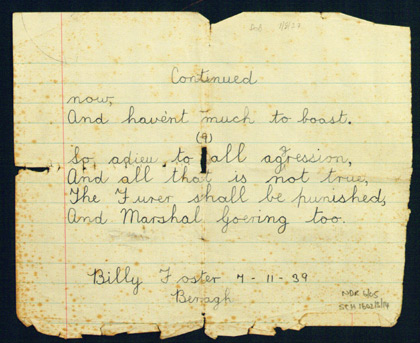 Continued
now,
And haven't much to boast.
(9)
So, adieu, to all agression,
And all that is not true,
The Furer shall be punished,
And Marshal Goering too.
Billy Foster 7-11-39
Beragh